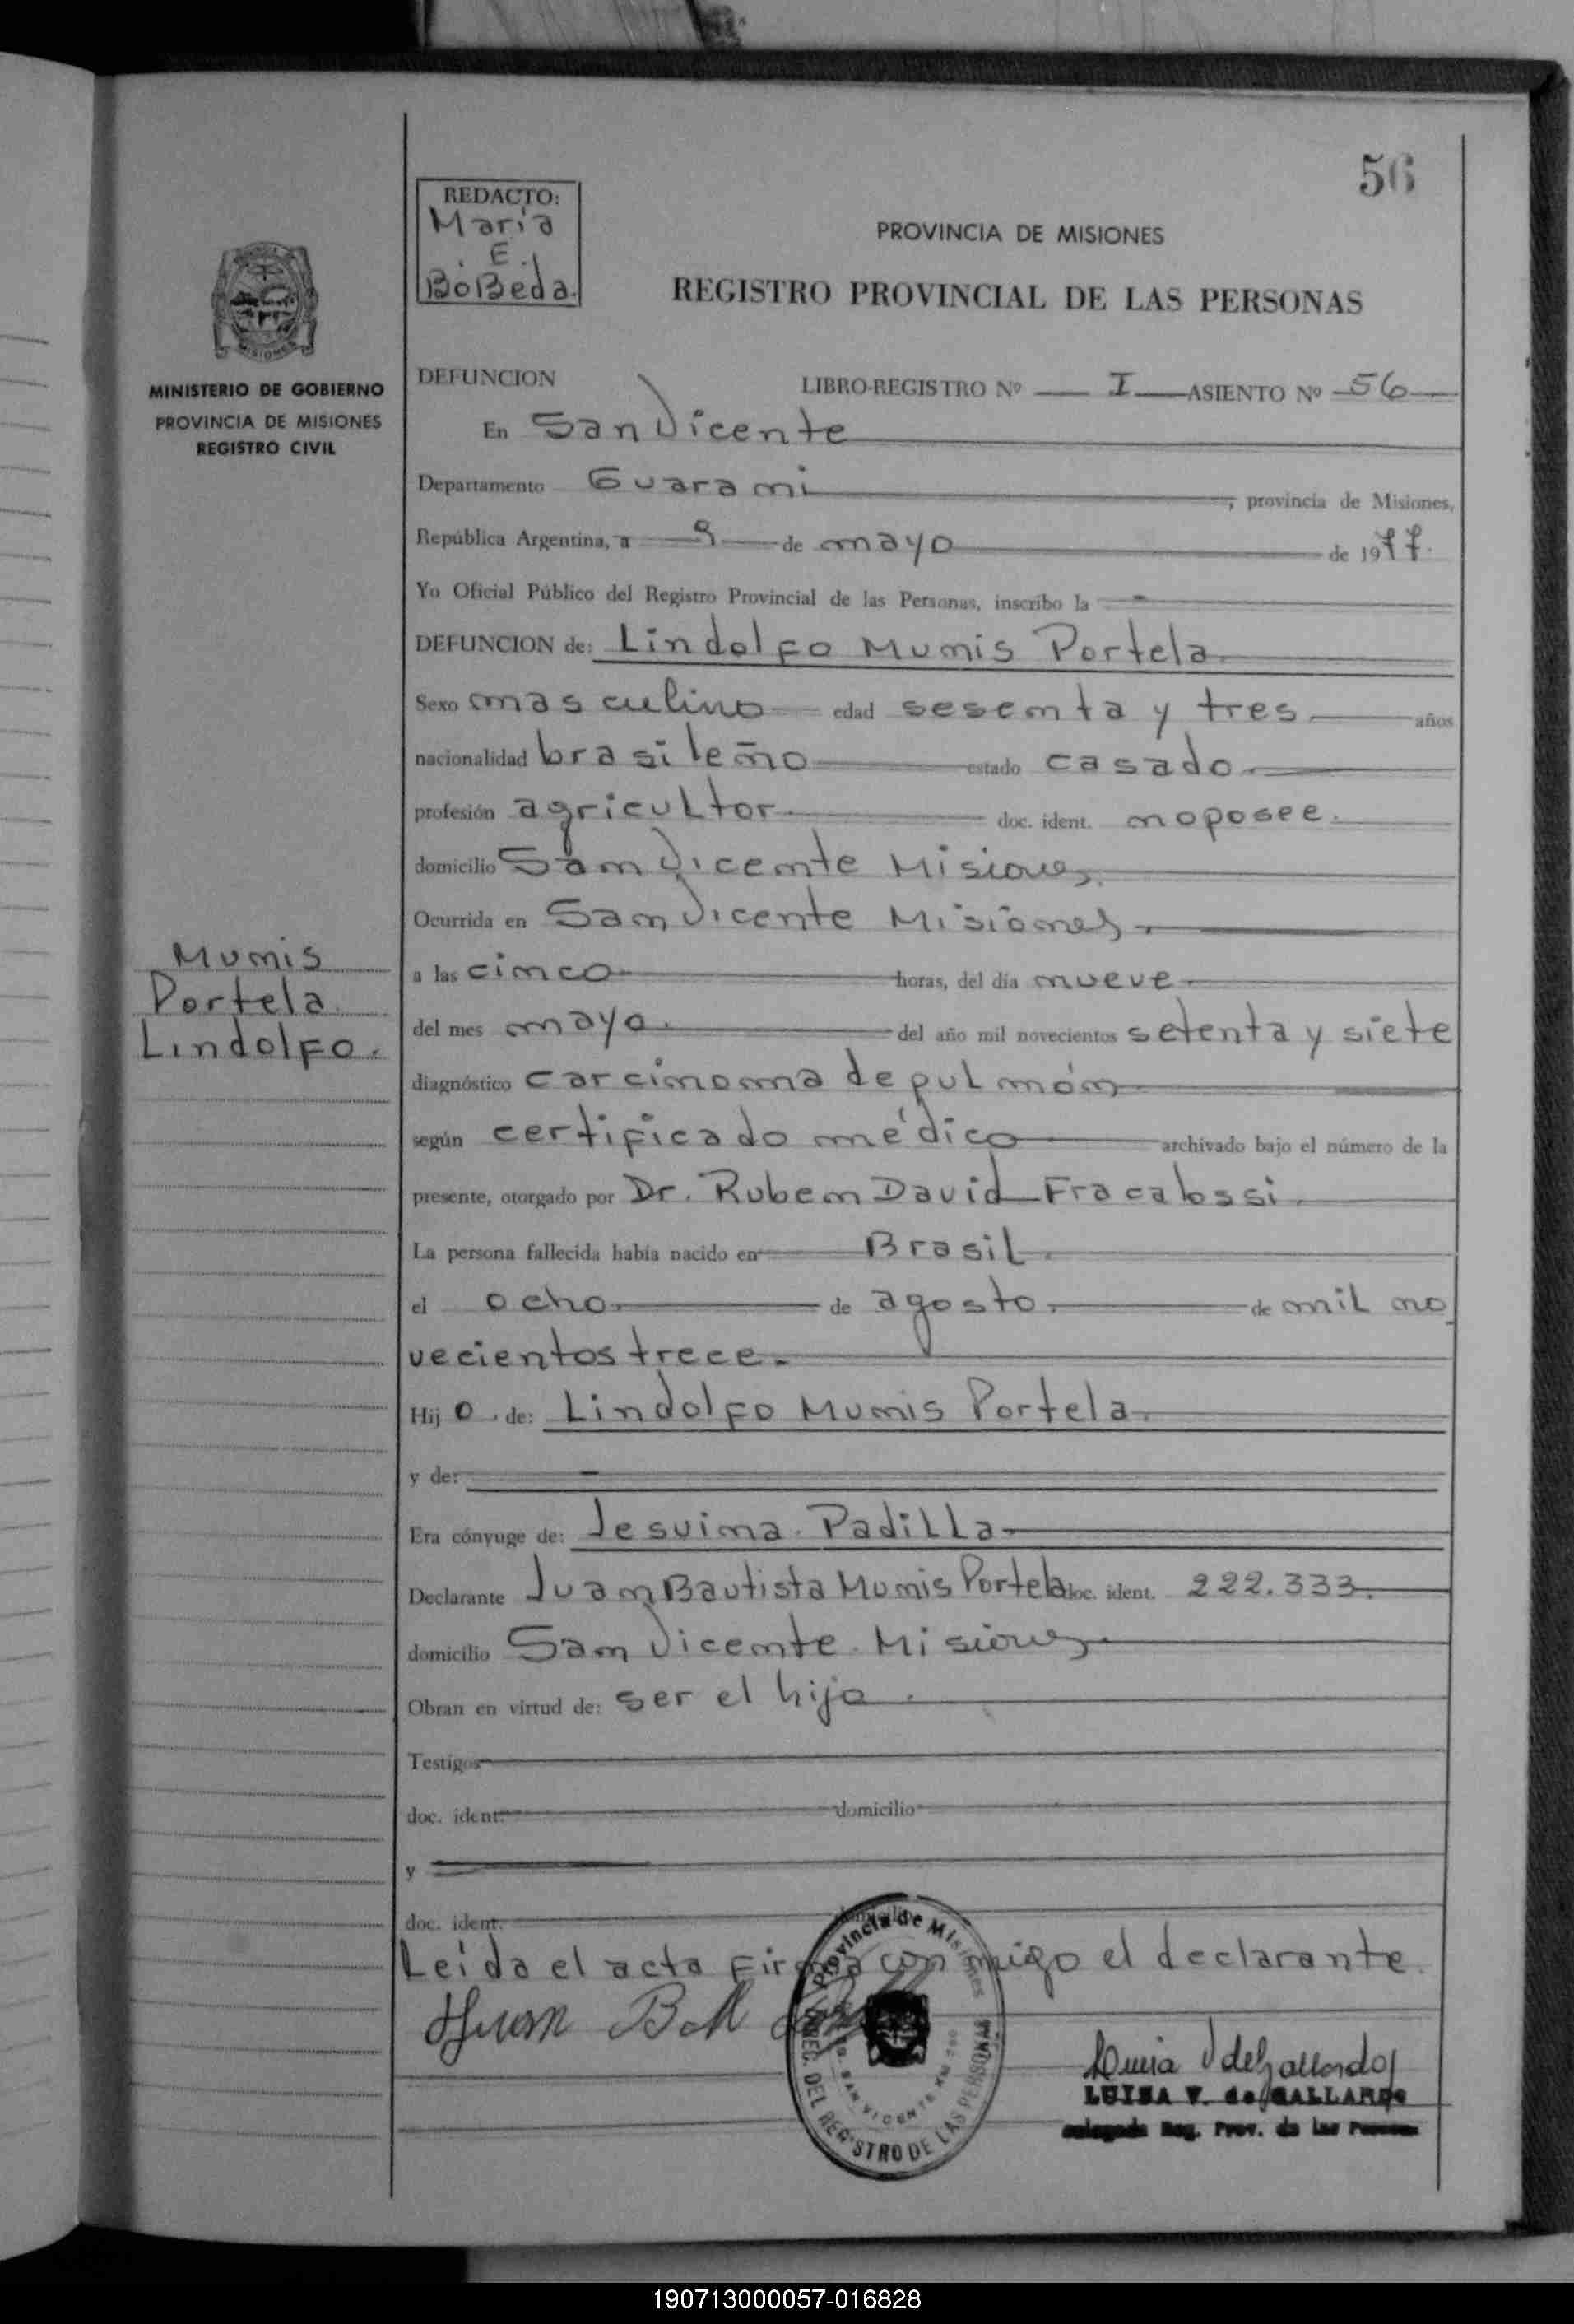 56
REDACTO:
Maria
E.
BoBeda.
PROVINCIA DE MISIONES
REGISTRO PROVINCIAL DE LAS PERSONAS
MISIONES
MINISTERIO DE GOBIERNO
PROVINCIA DE MISIONES
REGISTRO CIVIL
DEFUNCION LIBRO-REGISTRO Nº I ASIENTO Nº 56
En San Vicente
Departamento Guarami, provincia de Misiones,
República Argentina, a 9 de mayo de 1977.
Yo Oficial Público del Registro Provincial de las Personas, inscribo la
DEFUNCION de: Lindolfo Mumis Portela
Sexo masculino edad sesemta y tres años
nacionalidad brasileño estado casado.
profesión agricultor doc. ident. moposee.
domicilio Sam Vicemte Misiones.
Ocurrida en Sam Vicente Misiones.
a las cimco horas, del día mueve.
del mes mayo. del año mil novecientos setenta y siete
diagnóstico carcimoma de pulmóm
según certificado médico archivado bajo el número de la
presente, otorgado por Dr. Rubem David Fracalossi.
La persona fallecida había nacido en Brasil.
el ocho. de agosto. de mil no
vecientos trece.
Hij o. de: Lindolfo Mumis Portela.
y de:
Era cónyuge de: Jesuima. Padilla
Declarante Juam Bautista Mumis Portela doc. ident. 222.333.
domicilio Sam Vicemte. Misiones.
Obran en virtud de: ser el hijo.
Testigos
doc. ident. domicilio
y
doc. ident. domicilio
Leida el acta firma con migo el declarante.
Juan B M
Provincia de Misiones
DIREC. DEL REGISTRO DE LAS PERSONAS
SAN VICENTE
Luisa V de Gallardo
LUISA V. de GALLARDO
Delegada Reg. Prov. de las Personas
Mumis
Portela.
Lindolfo.
190713000057-016828